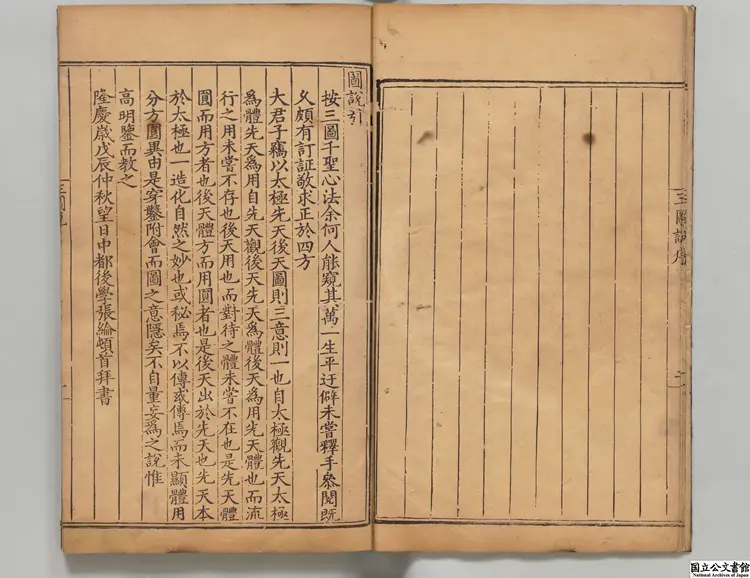 三圖説序
圖說引
按三圖千聖心法余何人能窺其萬一生平迂僻未嘗釋手參閱既
乆頗有訂証敬求正於四方
大君子竊以太極先天後天圖則三意則一也自太極觀先天太極
為體先天為用自先天觀後天先天為體後天為用先天體也而流
行之用未嘗不存也後天用也而對待之體未嘗不在也是先天體
圓而用方者也後天體方而用圓者也是後天出於先天也先天本
於太極也一造化自然之妙也或秘焉不以傳或傳焉而未顯體用
分方圓異由是穿鑿附會而圖之意隱矣不自量妄為之說惟
高明鑒而教之
隆慶歲戊辰仲秋望日中都後學張綸頓首拜書
国立公文書館
National Archives of Japan